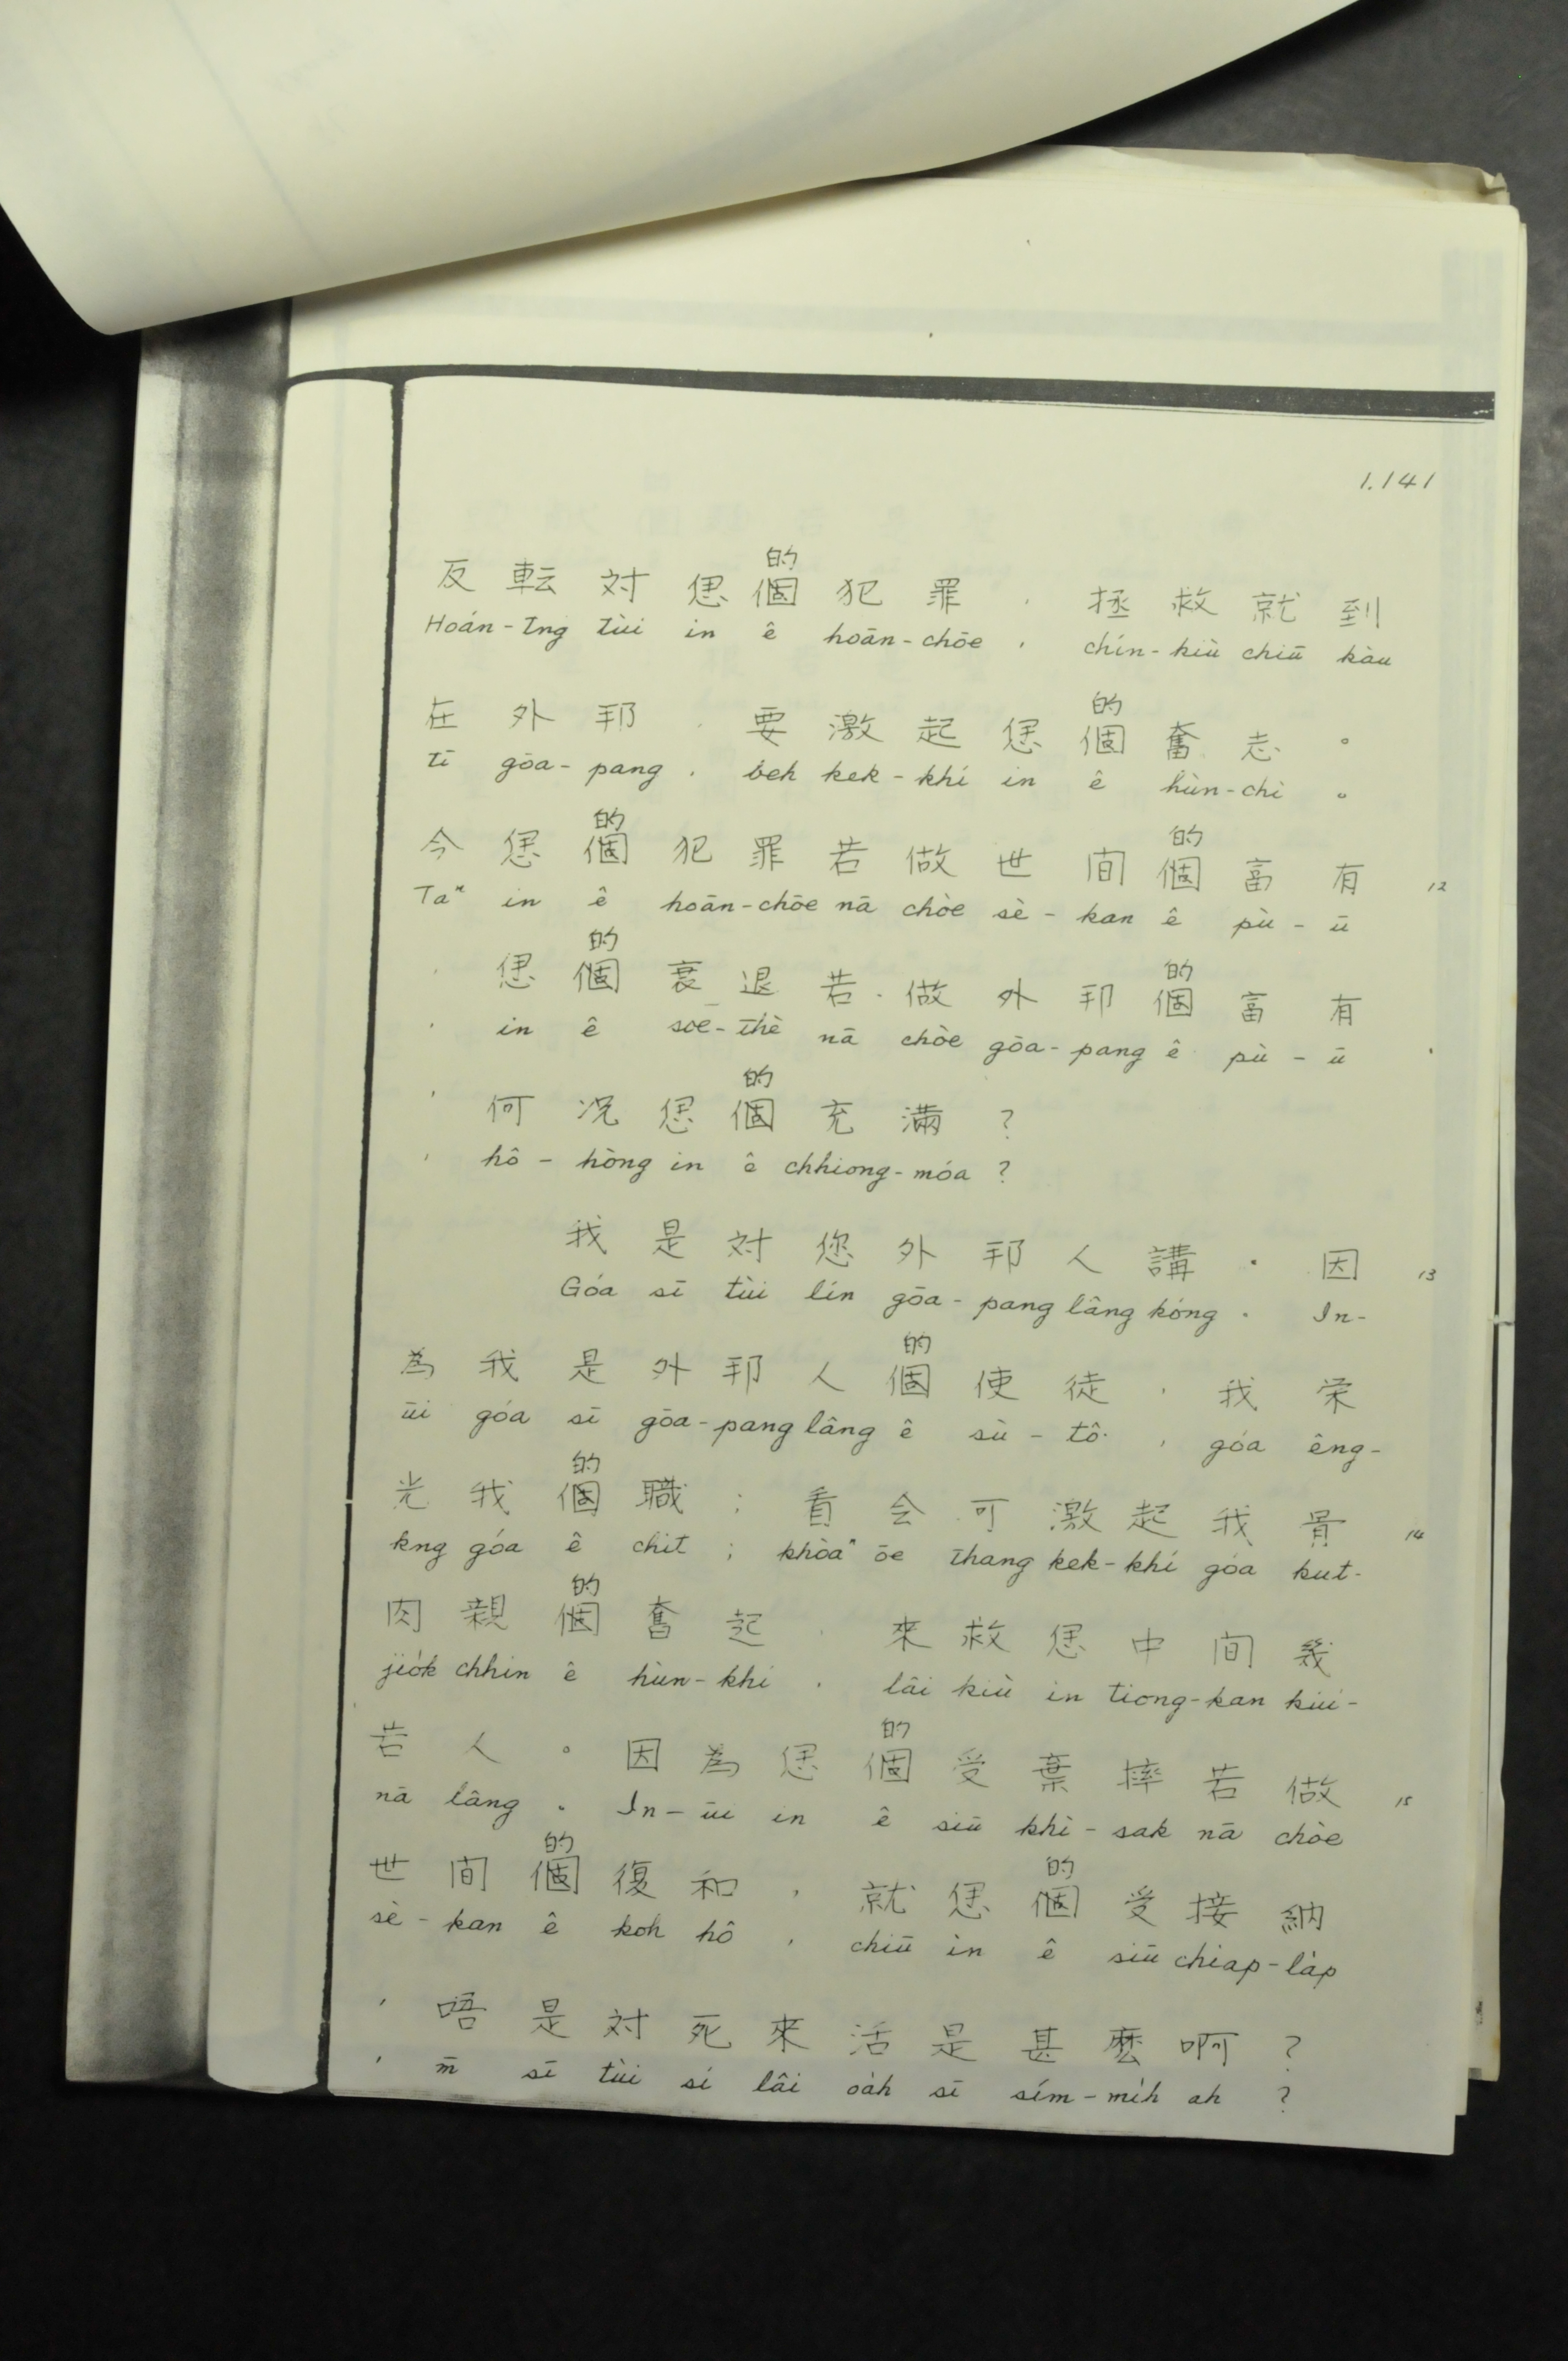 1.141
的
反転対偲個犯罪，拯救就到
Hoán-tńg tùi in ê hoān-chōe, chín-kiù chiū kàu
的
在外邦，要激起偲個奮志。
tī gōa-pang, beh kek-khí in ê hùn-chì。
的 的
今偲個犯罪若做世間個富有 12
Taⁿ in ê hoān-chōe nā chòe sè-kan ê pù-ū
的 的
，偲個衰退若做外邦個富有
, in ê soe-thè nā chòe gōa-pang ê pù-ū
的
，何況偲個充滿？
, hô-hòng in ê chhiong-móa?
我是対您外邦人講．因 13
Góa sī tùi lín gōa-pang lâng kóng. In-
的
為我是外邦人個使徒，我栄
ūi góa sī gōa-pang lâng ê sù-tô͘, góa êng-
的
光我個職；看会可激起我骨 14
kng góa ê chit; khòaⁿ ōe thang kek-khí góa kut-
的
肉親個奮起，來救偲中間幾
jio̍k chhin ê hùn-khí, lâi kiù in tiong-kan kúi-
的
若人。因為偲個受棄捽若做 15
nā lâng。In-ūi in ê siū khì-sak nā chòe
的 的
世間個復和，就偲個受接納
sè-kan ê koh hô, chiū in ê siū chiap-la̍p
，唔是対死來活是甚麼啊？
, m̄ sī tùi sí lâi oa̍h sī sím-mi̍h ah?